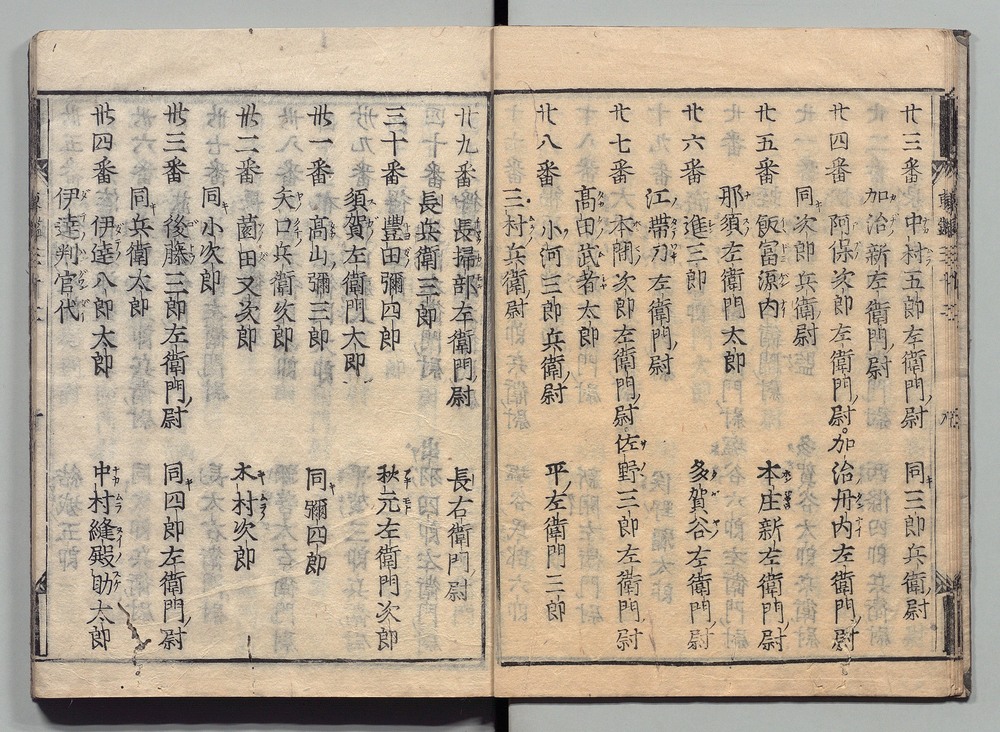 廿三番 中村五郎左衛門尉 同三郎兵衛尉
加治新左衛門尉
廿四番 阿保次郎左衛門尉 加治丹内左衛門尉
同次郎兵衛尉
廿五番 飯冨源内 本庄新左衛門尉
那須左衛門太郎
廿六番 進三郎 多賀谷左衛門尉
江帯刀左衛門尉
廿七番 本間次郎左衛門尉 佐野三郎左衛門尉
髙田武者太郎
廿八番 小河三郎兵衛尉 平左衛門三郎
三村兵衛尉
廿九番 長掃部左衛門尉 長右衛門尉
長兵衛三郎
三十番 豊田彌四郎 秋元左衛門次郎
須賀左衛門太郎
丗一番 髙山彌三郎 同彌四郎
矢口兵衛次郎
丗二番 薗田又次郎 木村次郎
同小次郎
丗三番 後藤三郎左衛門尉 同四郎左衛門尉
同兵衛太郎
丗四番 伊達八郎太郎 中村縫殿助太郎
伊達判官代